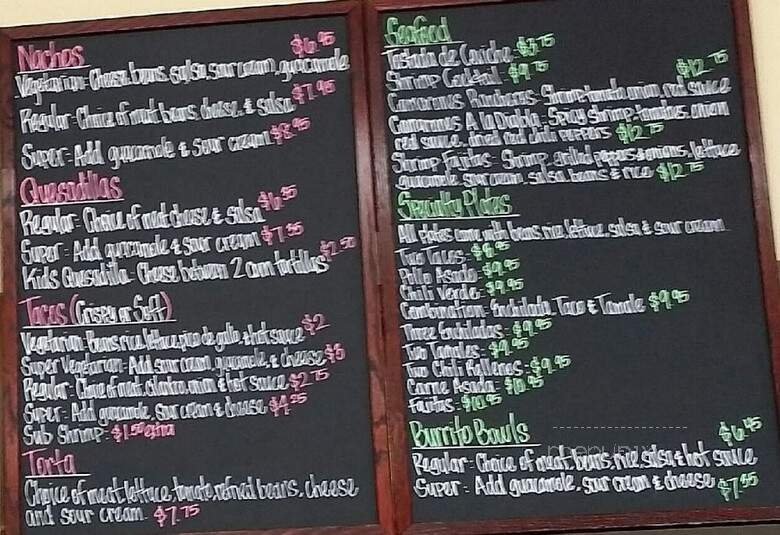 Nachos $6.95
Vegetarian- Cheese, beans, salsa, sour cream, guacamole
Regular- Choice of meat, beans, cheese, & salsa $7.95
Super- Add guacamole & sour cream $8.95
Quesadillas
Regular- Choice of meat, cheese & salsa $6.35
Super- Add guacamole & sour cream $7.55
Kids Quesadilla- Cheese between 2 corn tortillas $2.50
Tacos (Crispy or Soft)
Vegetarian- Beans, rice, lettuce, pico de gallo, & hot sauce $2
Super Vegetarian- Add sour cream, guacamole, & cheese $3
Regular- Choice of meat, cilantro, onion & hot sauce $2.75
Super- Add guacamole, sour cream & cheese $4.25
Sub Shrimp- $1.50 extra
Torta
Choice of meat, lettuce, tomato, refried beans, cheese
and sour cream $7.75
Seafood
Tostada de Ceviche- $3.75
Shrimp Cocktail- $9.75
$12.75
Camarones Rancheros- Shrimp, tomato, onion, red sauce
Camarones A la Diabla- Spicy shrimp, tomatoes, onion
red sauce, dried red chili peppers $12.75
Shrimp Fajitas- Shrimp, grilled peppers & onions, lettuce
guacamole, sour cream, salsa, beans & rice $12.75
Specialty Plates
All plates come with beans, rice, lettuce, salsa & sour cream
Two Tacos- $8.95
Pollo Asado- $9.95
Chili Verde- $9.95
Combination- Enchilada, Taco & Tamale $9.95
Three Enchiladas- $9.95
Two Tamales- $9.95
Two Chili Rellenos- $9.95
Carne Asada- $10.95
Fajitas- $10.95
Burrito Bowls $6.45
Regular- Choice of meat, beans, rice, salsa & hot sauce
Super- Add guacamole, sour cream & cheese $7.55